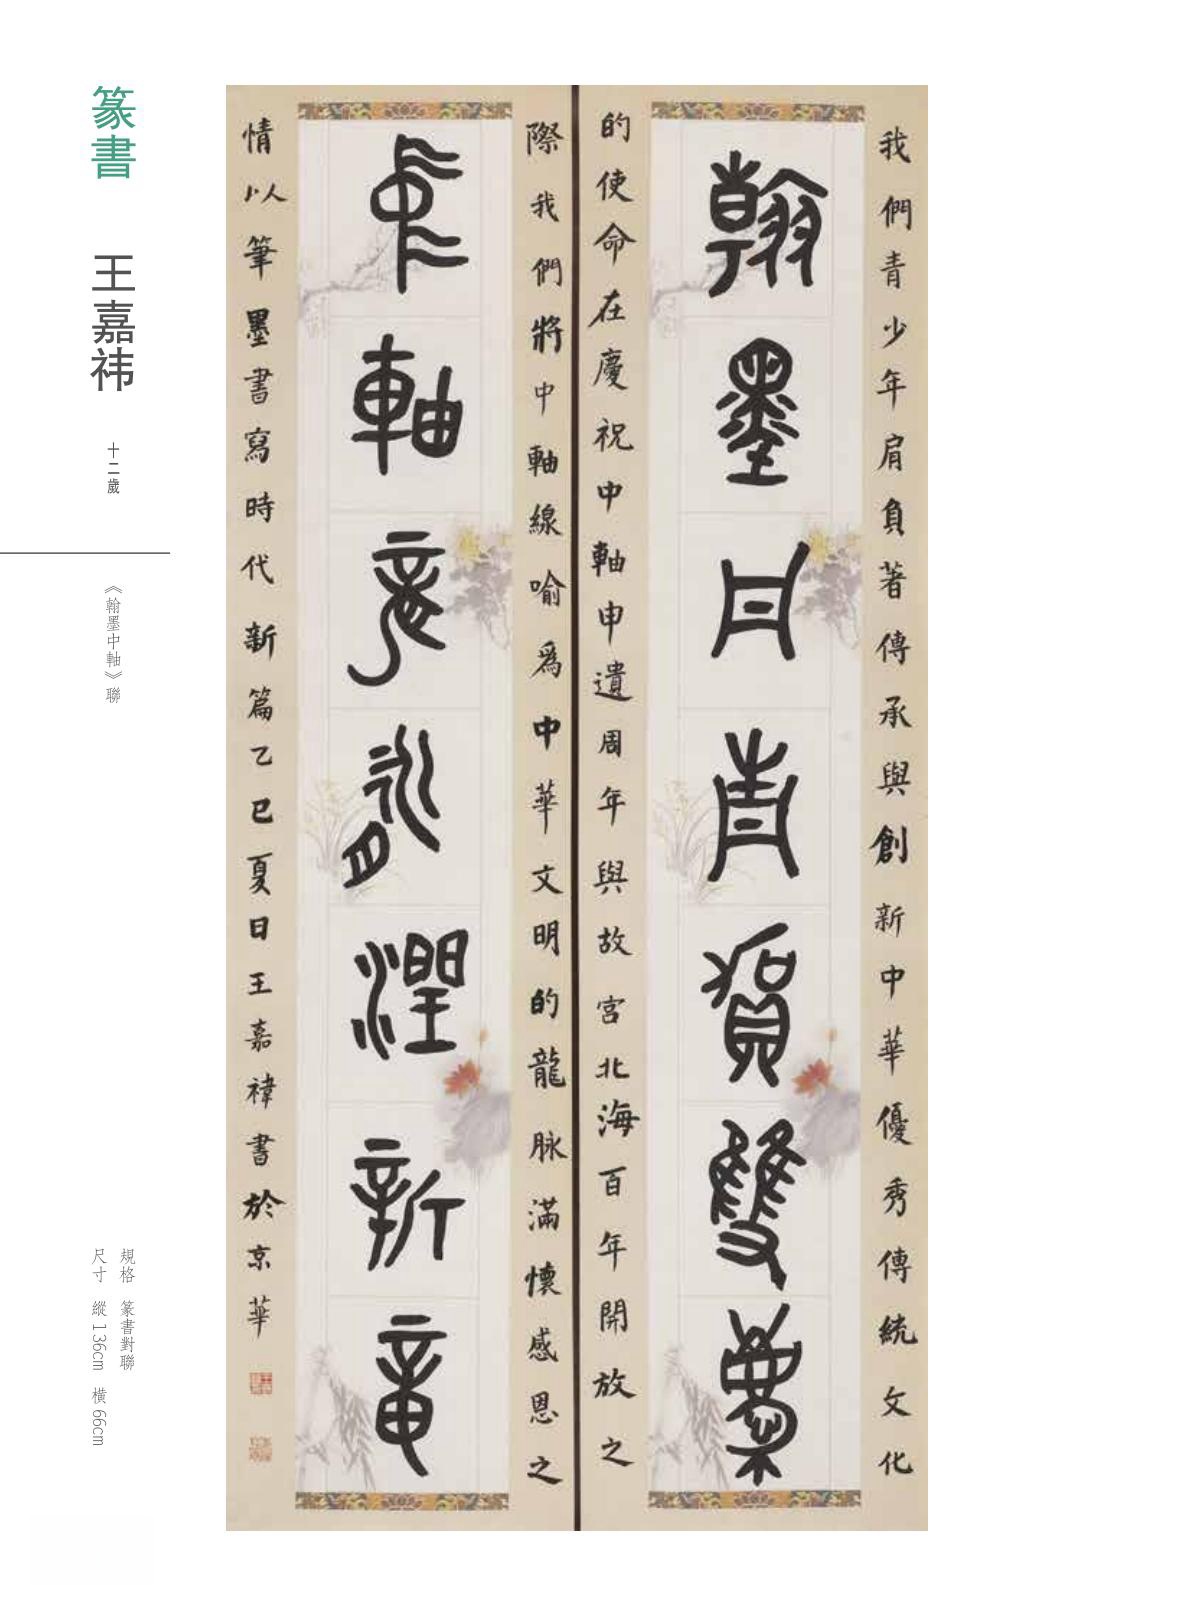 篆書 王嘉祎 十二歲
《翰墨中軸》聯
規格 篆書對聯
尺寸 縱136cm 橫66cm
我們青少年肩負著傳承與創新中華優秀傳統文化
翰墨丹青賀雙
的使命在慶祝中軸申遺周年與故宮北海百年開放之
際我們將中軸線喻爲中華文明的龍脉滿懷感恩之
中軸龍脈潤新章
情以筆墨書寫時代新篇乙巳夏日王嘉禕書於京華